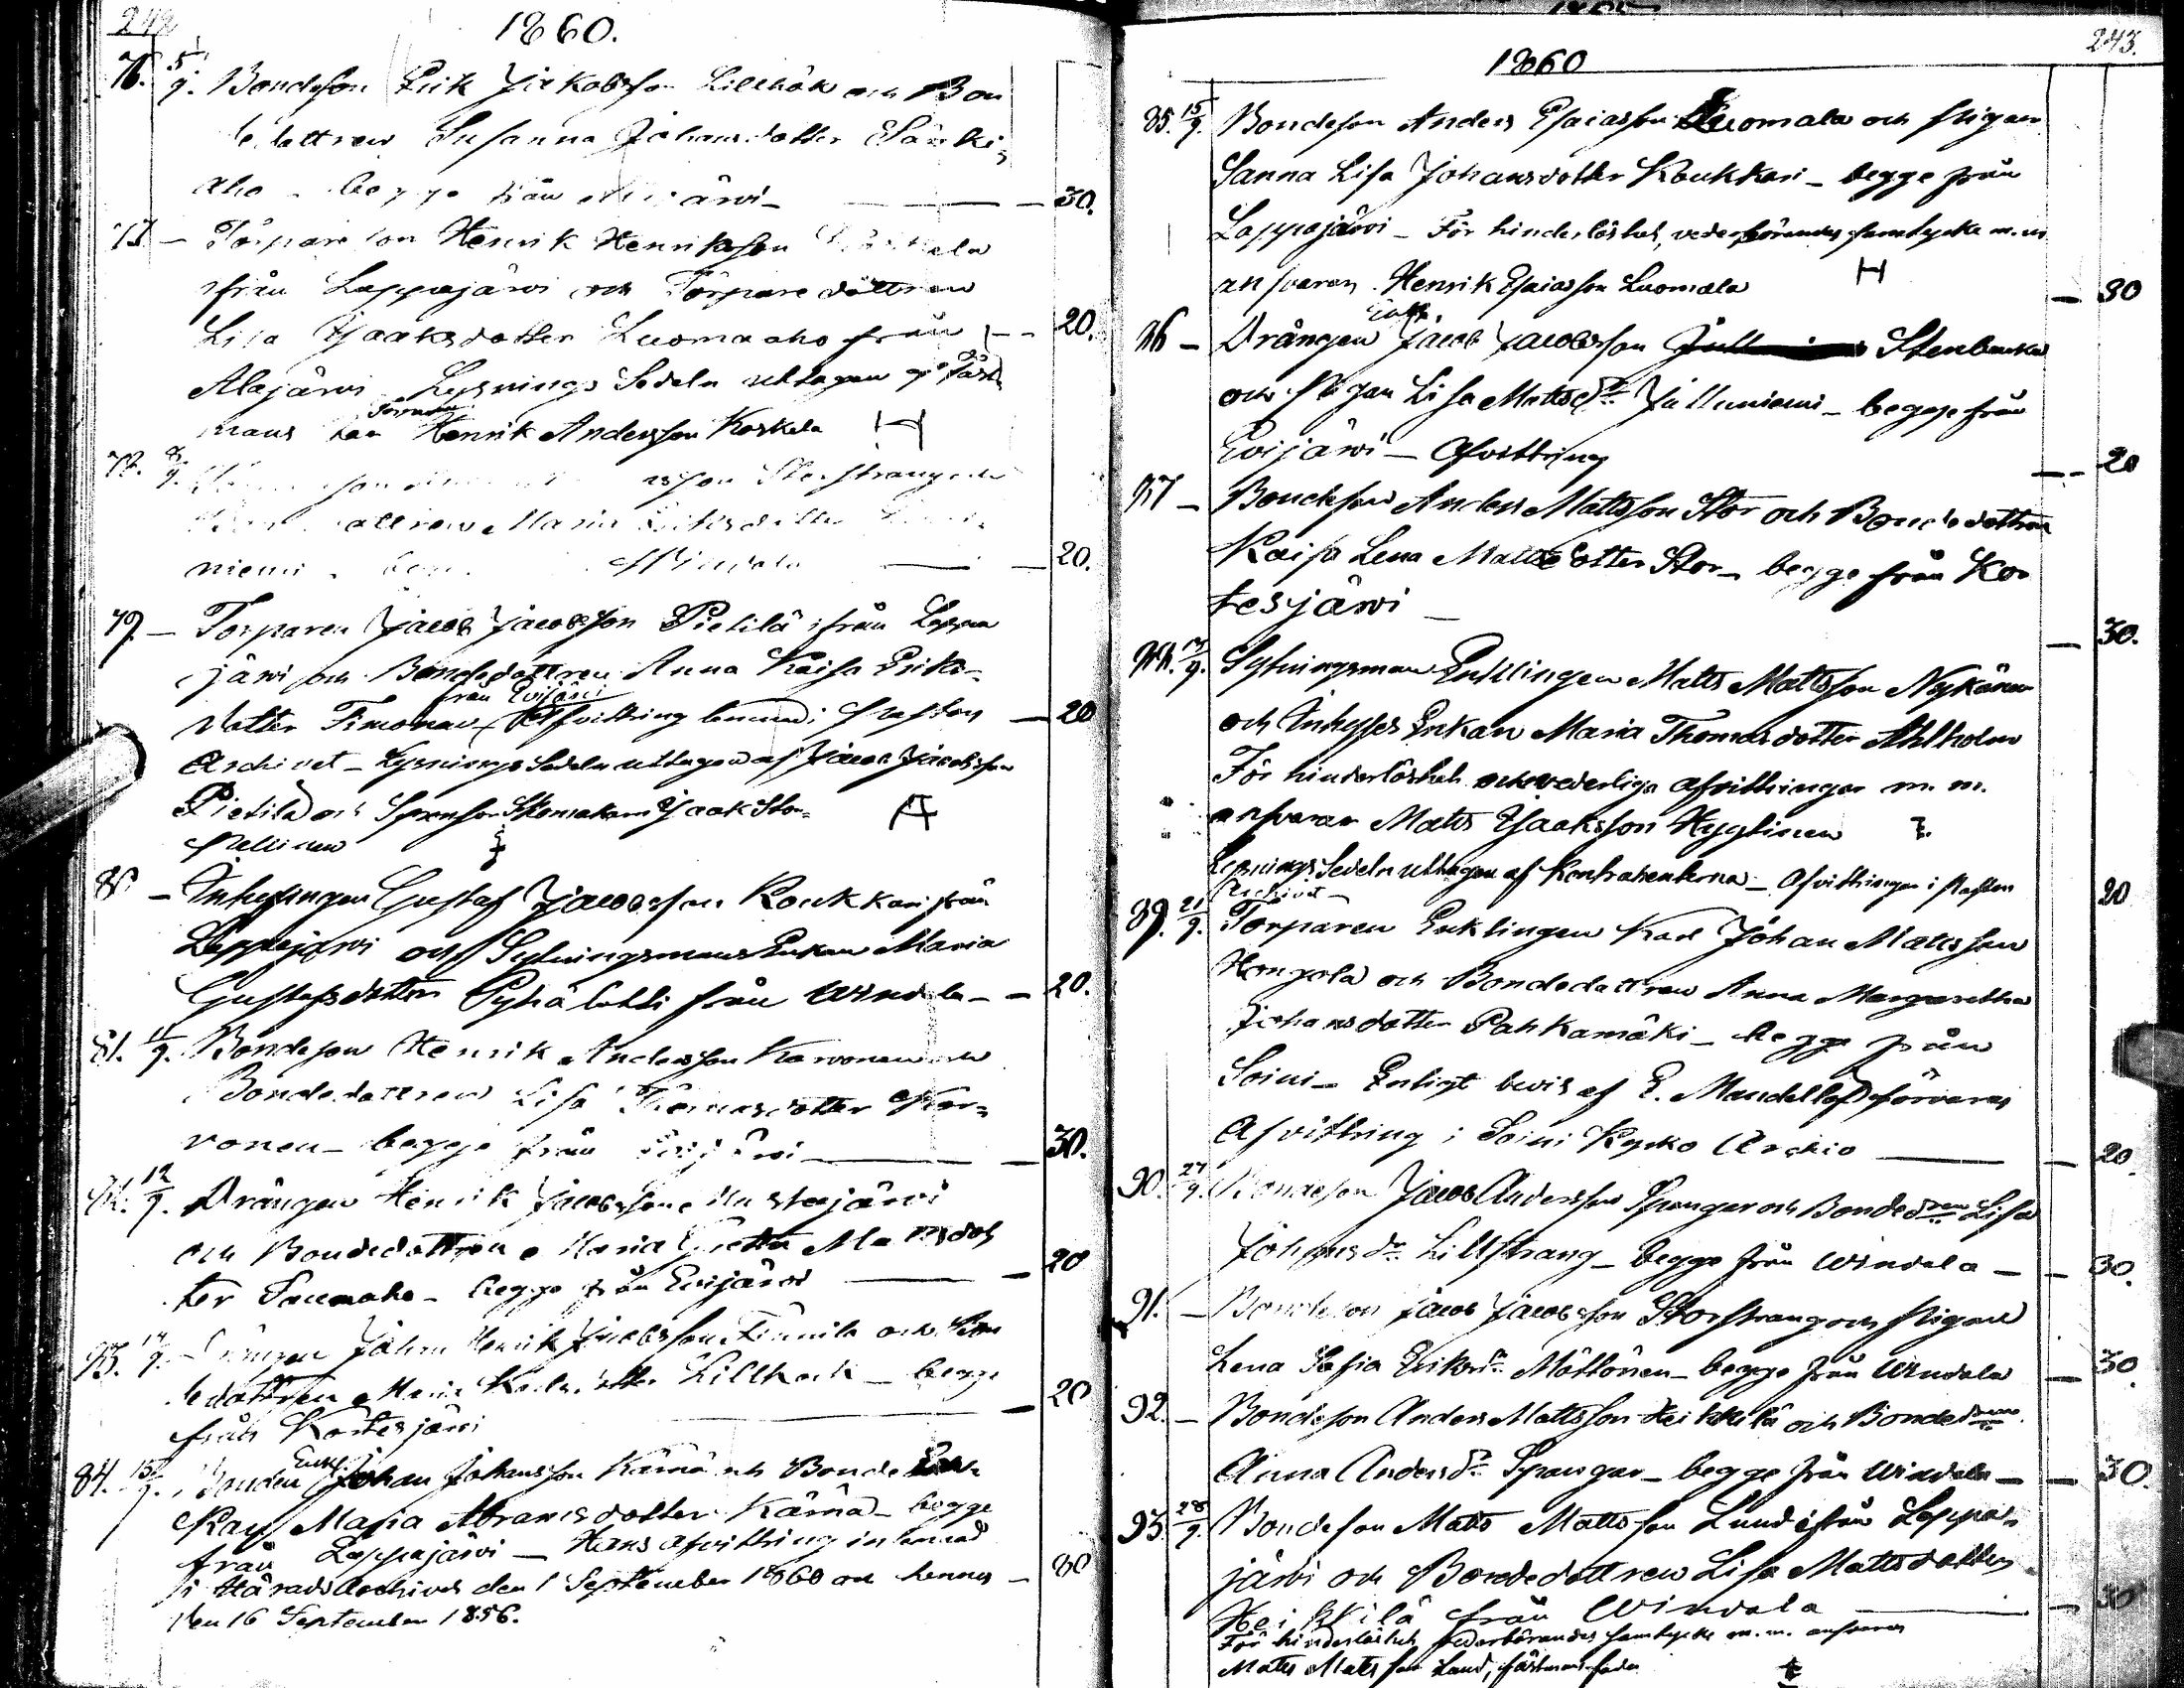 242
1860.
76. 5/9. Bondeson Erik Jakobsson Lillhök och Bon
dedottren Susanna Johansdotter Särki-
aho - begge från 30.
77 - Torpareson Henrik Henriksson
från Lappajärvi och Torparedottren
Lisa Isaaksdotter Luomaaho från - 20.
Alajärvi Lysnings Sedeln uttagen af
Torparen Henrik Andersson Koskela
78. 8/9. Storstrang
Maria Eriksdotter
niemi - Windala - 20.
79 - Torparen Jacob Jacobsson Pietilä från Lappa
järvi och Bondedottren Anna Kaisa Eriks-
från Evijärvi
dotter Timonen Afvittring - 20
Archivet - Lysnings Sedeln uttagen af Jacob Jacobsson
Pietilä och Isaak

80 - Inhysingen Gustaf Jacobsson Koukkari från
Lappajärvi och Sytningsmans Enkan Maria
Gustafsdotter Pyhälahti från Windala - 20.
81. 11/9. Bondeson Henrik Andersson Karvonen och
Bondedottren Lisa Thomasdotter Kar=
vonen - begge från Evijärvi - 30.
82. 12/9. Drängen Henrik Jacobsson
och Bondedottren Maria Greta Mattsdot
ter - begge från Evijärvi - 20
83. 14/9. Drängen Johan Henrik Jacobsson Finnila och Bon
dedottren Maria Lillkack - begge 20
från Kortesjärvi
84. 15/9. Bonden Enkl. Johan Johansson Kärnä och Bonde
Kaisa Maria Abramsdotter Kärnä - begge
från Lappajärvi - Hans afvittring inlemnad
i Härads Archivet den 1 September 1860 och hennes - 30
den 16 September 1856.
243.
1860
85. 15/9. Bondeson Anders Esaiasson Luomala och pigan
Sanna Lisa Johansdotter Koukkari - begge från
Lappajärvi - För hinderlöshet, vederbörandes samtycke m.m.
ansvarar Henrik Esaiasson Luomala - 30
86 - Drängen Enkl. Jacob Jacobsson Stenbacka
och Pigan Lisa Mattsdr Julluniemi - begge från
Evijärvi - Afvittring - 20
87 - Bondeson Anders Mattsson Stor och Bondedottren
Kaisa Lena Mattsdotter Stor - begge från Kor
tesjärvi - 30.
88. /9. Sytningsman Enklingen Matts Mattsson Nykänen
och Inhyses Enkan Maria Thomasdotter Ahlholm
För hinderlöshet och vederliga afvittringar m. m.
ansvarar Matts Isaaksson Hyytinen
Lysnings Sedeln uttagen af Kontrahenterna - Afvittringen i 20
Archivet -
89. 21/9. Torparen Enklingen Karl Johan Mattsson
Hongola och Bondedottren Anna Margaretha
Johansdotter Pahkamäki - begge från
Soini - Enligt bevis af E. Mandellöf förvaras
Afvittring i Soini Kyrko Archiv - 20
90. 27/9. Bondeson Jacob Andersson Spangar och Bondedren Lisa
Johansdr Lillstrang - begge från Windala - 30.
91. - Bondeson Jacob Jacobsson Storstrang och pigan
Lena Sofia Eriksdr Möttönen - begge från Windala - 30.
92. - Bondeson Anders Mattsson Heikkilä och Bondedren
Anna Andersdr Spangar - begge från Windala - 30.
93. 28/9. Bondeson Matts Mattsson Lund från Lappa-
järvi och Bondedottren Lisa Mattsdotter
Heikkilä från Windala - 30
För hinderlöshet, vederbörandes samtycke m.m. ansvarar
Matts Mattsson Lund, fästmans fader